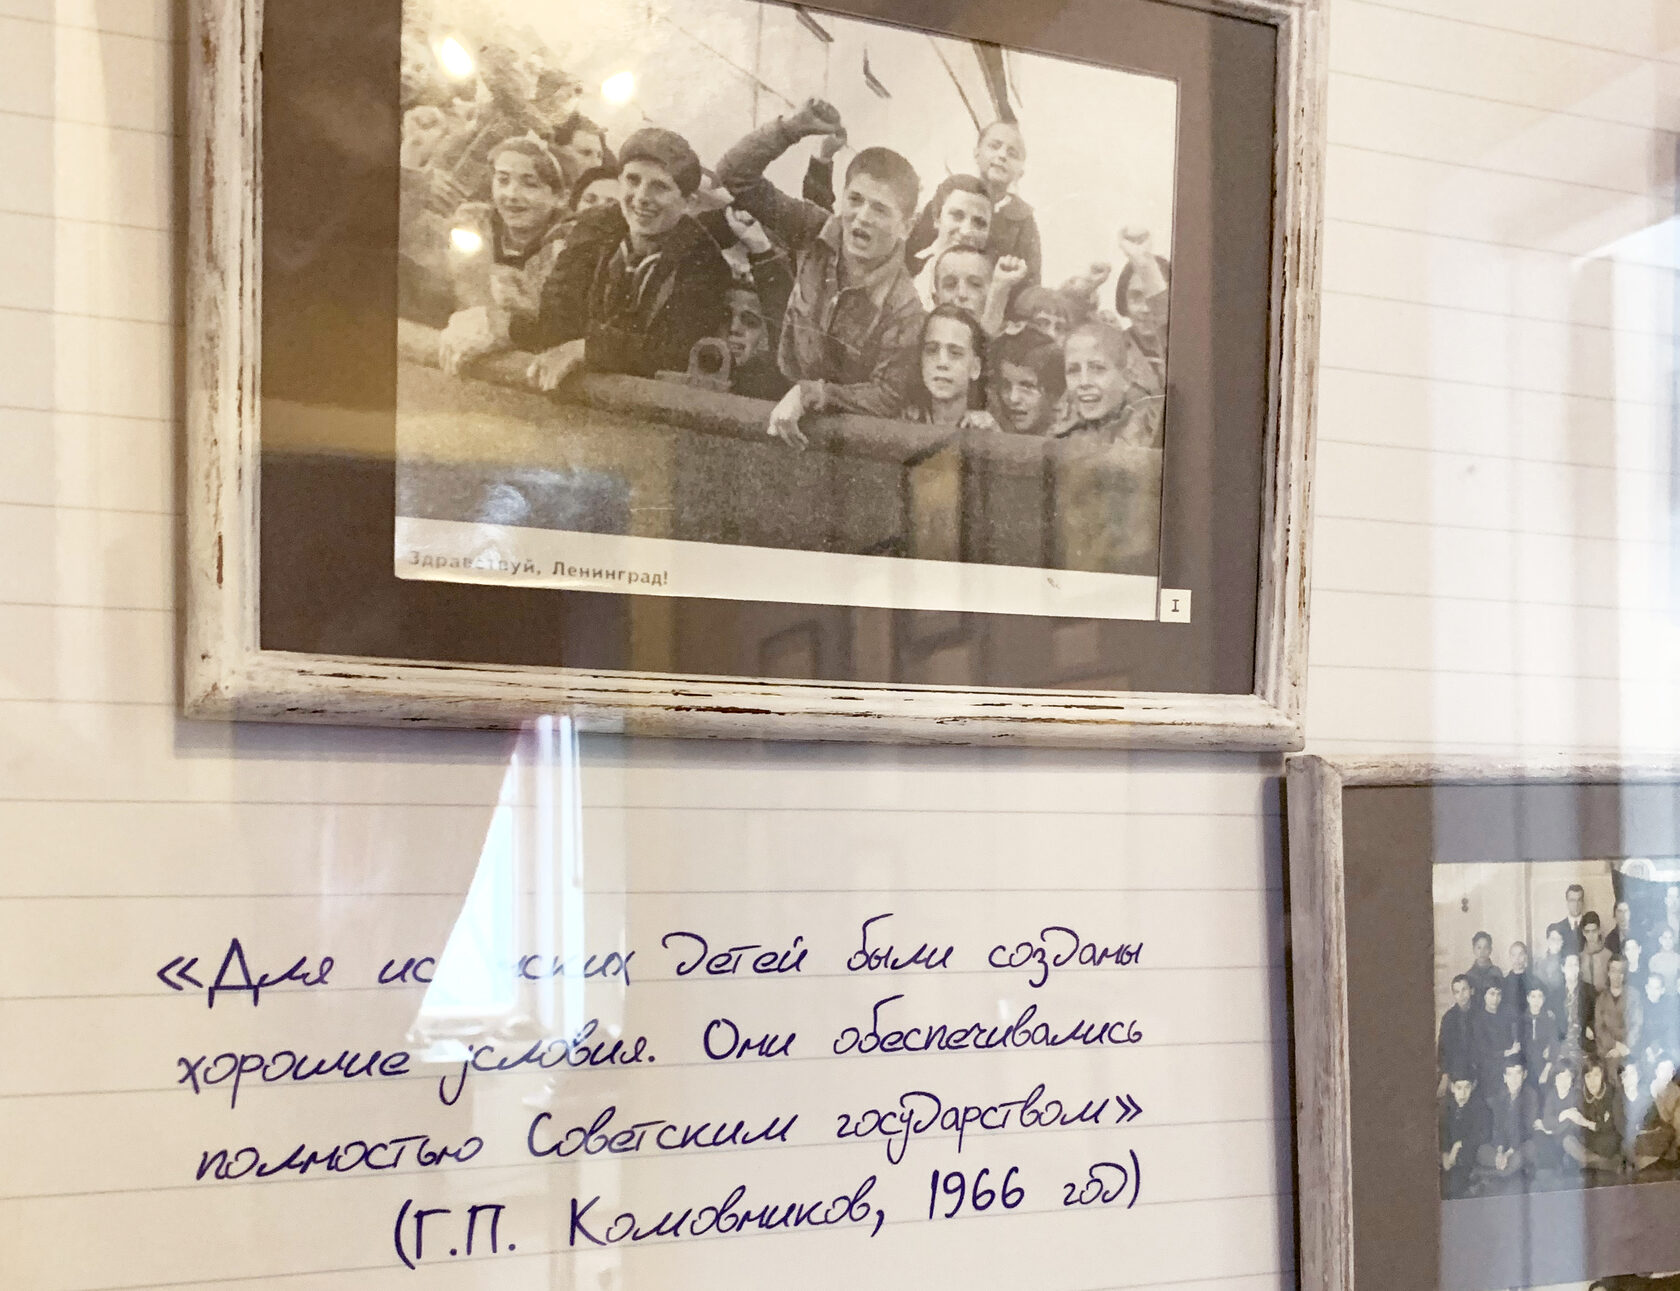 Здравствуй, Ленинград!
I
«Для испанских детей были созданы
хорошие условия. Они обеспечивались
полностью Советским государством»
(Г.П. Комовников, 1966 год)